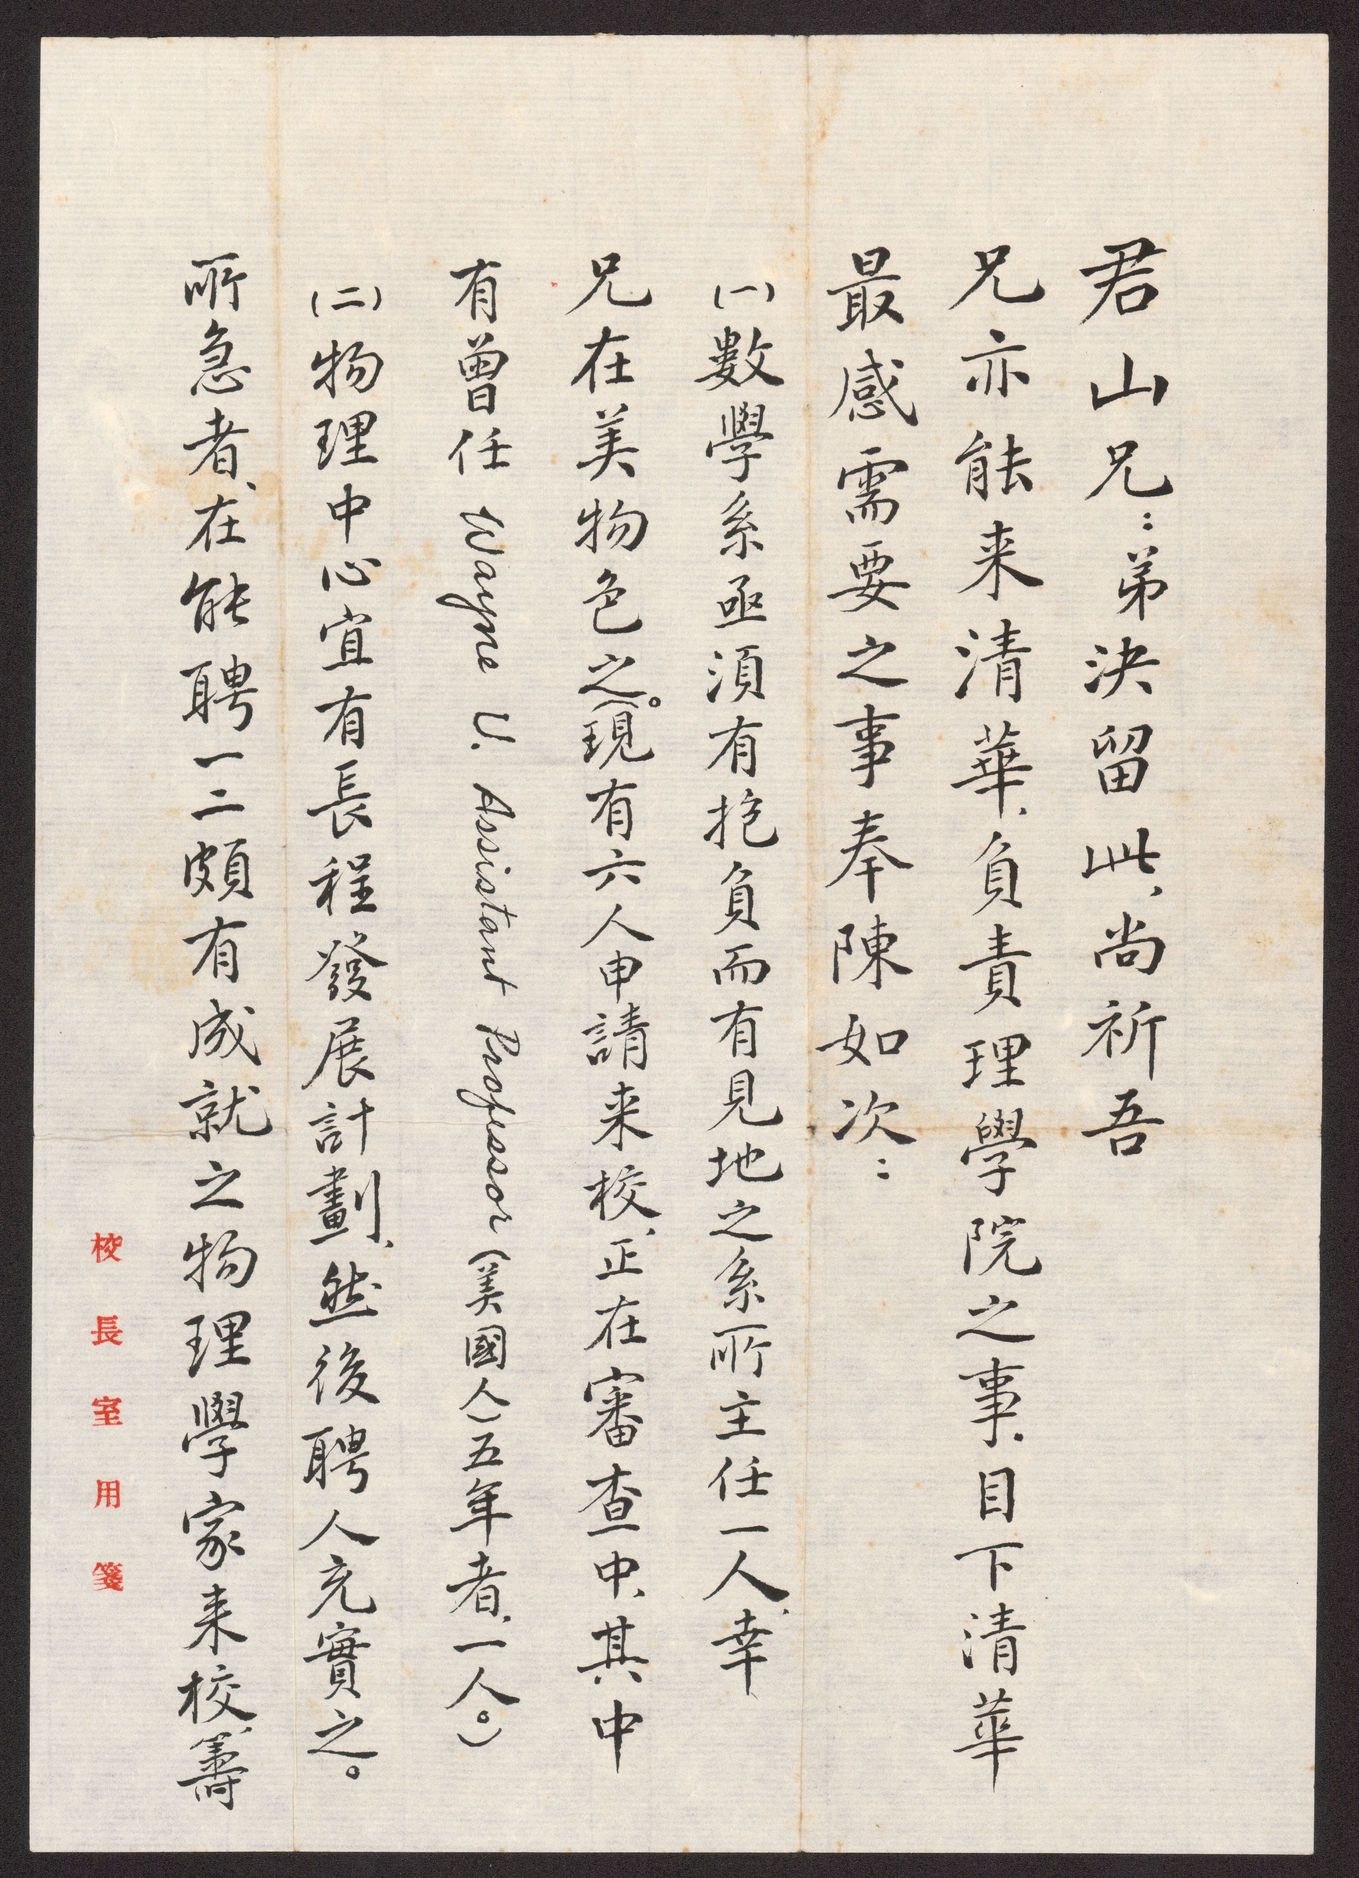 君山兄：弟決留此、尚祈吾
兄亦能来清華、負責理學院之事、目下清華
最感需要之事奉陳如次：
(一)數學系亟須有抱負而有見地之系所主任一人、幸
兄在美物色之。(現有六人申請来校、正在審查中、其中
有曾任 Wayne U. Assistant Professor (美國人)五年者、一人。)
(二)物理中心宜有長程發展計劃、然後聘人充實之。
所急者、在能聘一二頗有成就之物理學家来校、籌
校長室用箋